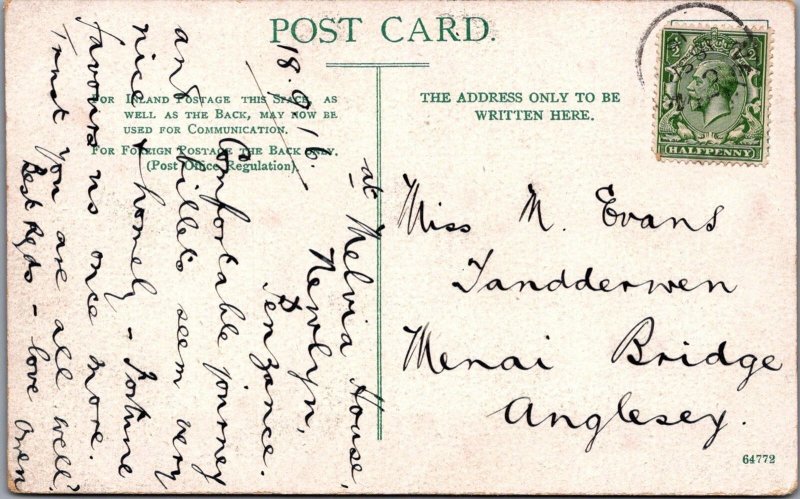 POST CARD.
FOR INLAND POSTAGE THIS SPACE, AS
WELL AS THE BACK, MAY NOW BE
USED FOR COMMUNICATION.
FOR FOREIGN POSTAGE THE BACK ONLY.
(Post Office Regulation).
THE ADDRESS ONLY TO BE
WRITTEN HERE.
HALFPENNY
18.9.16.
at Melvia House,
Newlyn,
Penzance.
Comfortable journey
and billets seem very
nice & homely - Fortune
favours us once more.
Trust you are all well.
Best Rgds - love Owen
Miss M. Evans
Tandderwen
Menai Bridge
Anglesey.
64772